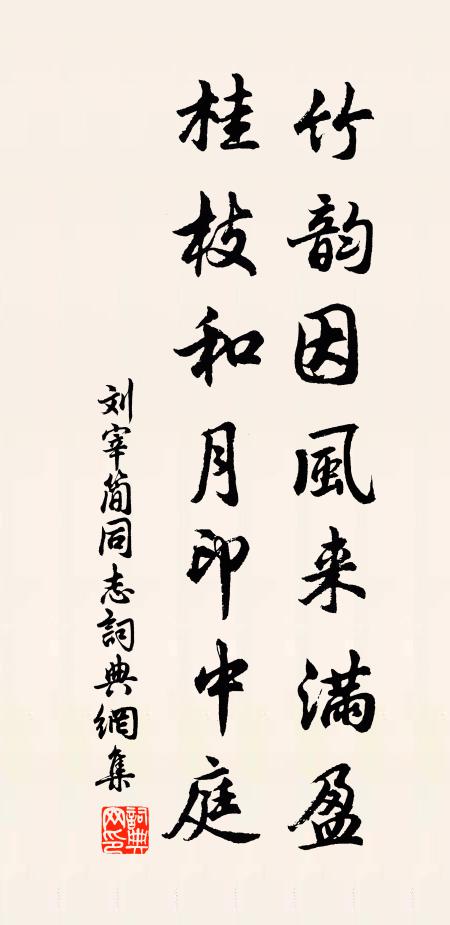 竹韵因風来满盈
桂枝和月印中庭
刘宰简同志詞典網集
詞典
网印